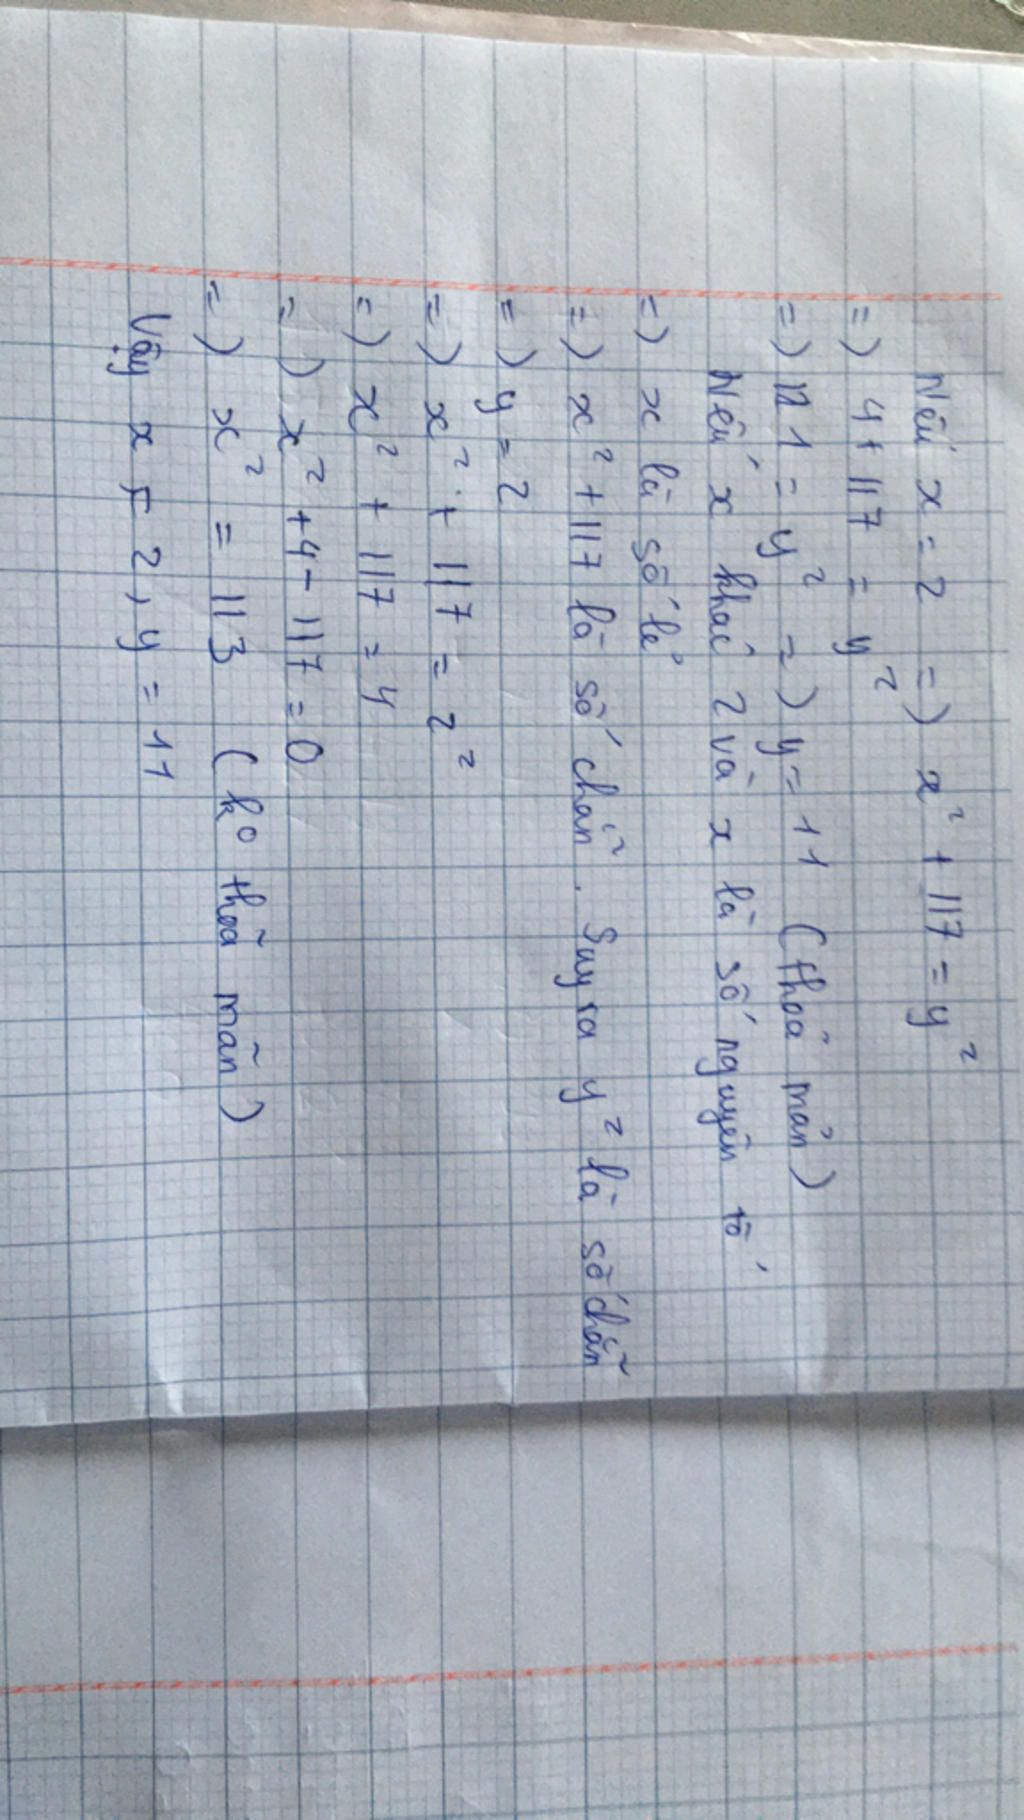 Nếu x = 2 => x² + 117 = y²
=> 4 + 117 = y²
=> 121 = y² => y = 11 (thoả mản)
Nếu x khác 2 và x là số nguyên tố
=> x là số lẻ
=> x² + 117 là số chẵn. Suy ra y² là số chẵn
=> y = 2
=> x² + 117 = 2²
=> x² + 117 = 4
=> x² + 4 - 117 = 0
=> x² = 113 (ko thoã mãn)
Vậy x = 2, y = 11